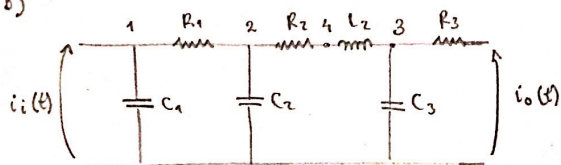 b)
1 R1 2 R2 4 L2 3 R3
ii(t) C1 C2 C3 io(t)